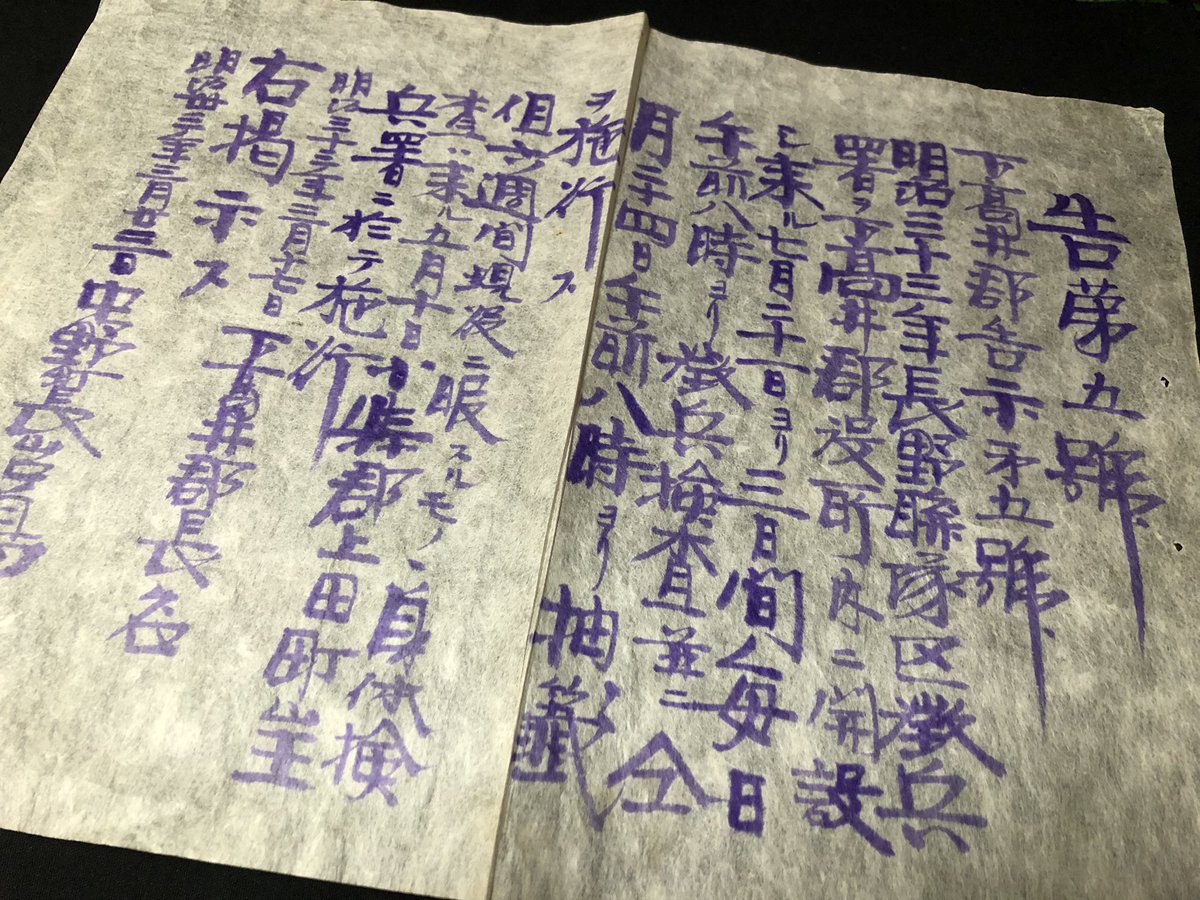 告第五號
下髙井郡告示才五號
明治三十三年長野聯隊区徴兵
署ヲ下髙井郡役所内ニ開設
シ来ル七月二十一日ヨリ三日間毎日
午前八時ヨリ徴兵検査並ニ仝
月二十四日午前八時ヨリ抽籤
ヲ施行ス
但六週間現役ニ服スルモノヽ身体検
査ハ来ル五月十日小縣郡上田町徴
兵署ニ於テ施行
明治三十三年三月十七日
下髙井郡長名
右掲示ス
明治卅三年三月廿三日
中野町長